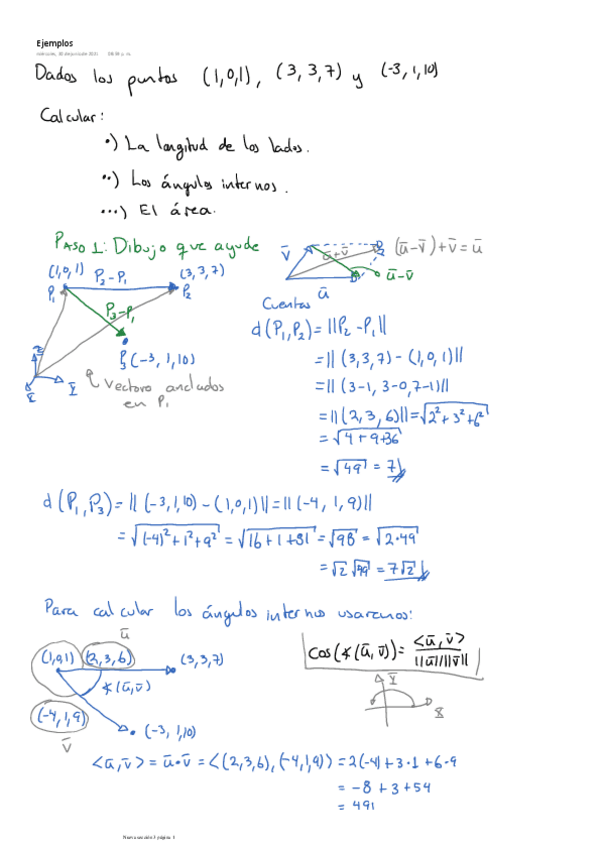 Ejemplos
Dados los puntos (1,0,1), (3,3,7) y (-3,1,10)
Calcular:
•) La longitud de los lados.
••) Los ángulos internos.
•••) El área.
PASO 1: Dibujo que ayude
(1,0,1) P₂-P₁ (3,3,7)
P₁ P₂
P₃-P₁
P₃ (-3,1,10)
Vectores anclados
en P₁
v̄ ū+v̄ (ū-v̄)+v̄=ū
ū-v̄
ū
Cuentas
d(P₁,P₂)=||P₂-P₁||
=||(3,3,7)-(1,0,1)||
=||(3-1,3-0,7-1)||
=||(2,3,6)||=√2²+3²+6²
=√4+9+36
=√49 = 7
d(P₁,P₃)=||(-3,1,10)-(1,0,1)||=||(-4,1,9)||
=√(-4)²+1²+9² = √16+1+81 = √98 = √2·49
=√2 √49 = 7√2
Para calcular los ángulos internos usaremos:
ū
(1,0,1) (2,3,6) (3,3,7)
∢(ū,v̄)
(-4,1,9)
v̄
(-3,1,10)
cos(∢(ū,v̄))= <ū,v̄> / ||ū||||v̄||
Ȳ
X̄
<ū,v̄> = ū·v̄ = <(2,3,6),(-4,1,9)> = 2(-4)+3·1+6·9
= -8+3+54
= 49